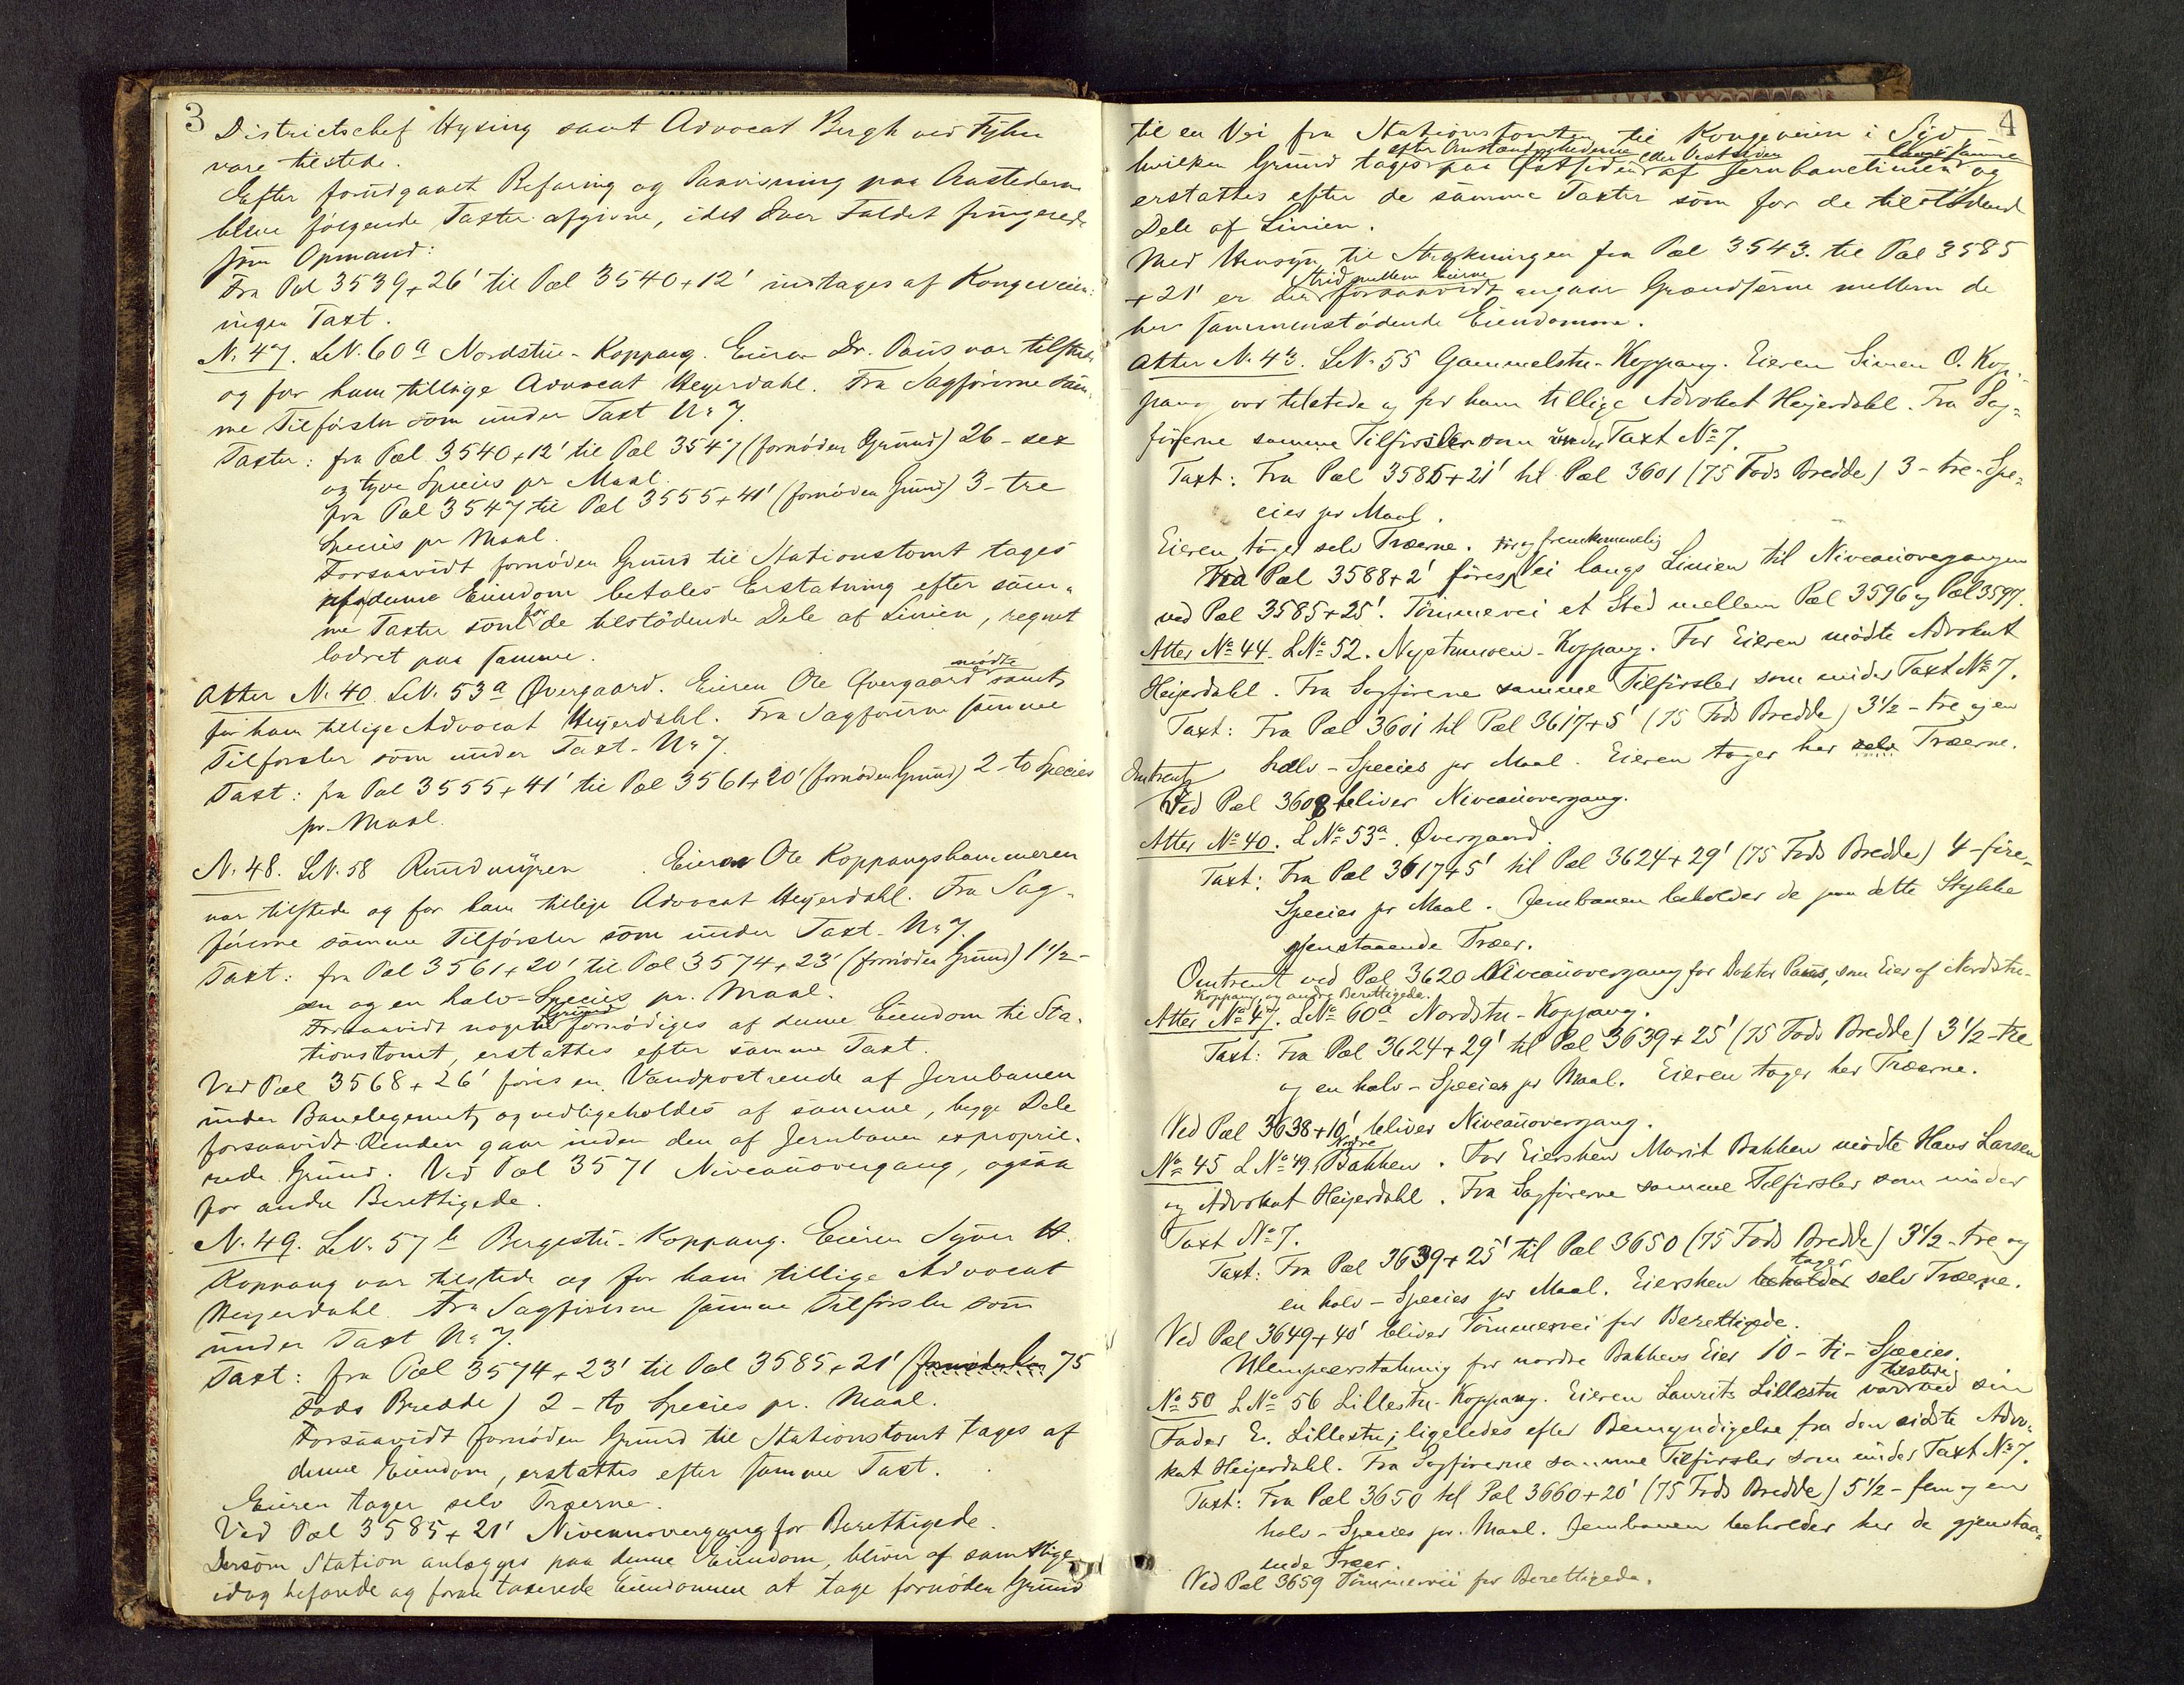 3
Districtschef Hysing samt Advocat Bergh ved Fyhn
vare tilstede.
Efter forudgaaet Befaring og Paavisning paa Aastederne
bleve følgende Taxter afgivne, idet Iver Foldet fungerede
som Opmand:
Fra Pæl 3539+26' til Pæl 3540+12' indtages af Kongeveien:
ingen Taxt.
N. 47. LN. 60a Nordstu-Koppang. Eieren Dr. Paus var tilstede
og for ham tillige Advocat Heyerdahl. Fra Sagførerne sam-
me Tilførsler som under Taxt No 7.
Taxter: fra Pæl 3540+12' til Pæl 3547 (fornøden Grund) 26 - sex
og tyve Species pr Maal.
fra Pæl 3547 til Pæl 3555+41' (fornøden Grund) 3 - tre
Species pr Maal.
Forsaavidt fornøden Grund til Stationstomt tages
af denne Eiendom betales Erstatning efter sam-
me Taxter som for de tilstødende Dele af Linien, regnet
lodret paa samme.
Atter N. 40 LN. 53a Øvergaard. Eieren Ole Øvergaard mødte samt
for ham tillige Advocat Heyerdahl. Fra Sagførerne samme
Tilførsler som under Taxt No 7.
Taxt: fra Pæl 3555+41' til Pæl 3561+20' (fornøden Grund) 2 - to Species
pr Maal.
N. 48. LN. 58 Rundmyren. Eieren Ole Koppangshammeren
var tilstede og for ham tillige Advocat Heyerdahl. Fra Sag-
førerne samme Tilførsler som under Taxt No 7.
Taxt: fra Pæl 3561+20' til Pæl 3574+23' (fornøden Grund) 1 1/2 -
en og en halv - Species pr. Maal.
Forsaavidt noget Grund fornødiges af denne Eiendom til Sta-
tionstomt, erstattes efter samme Taxt.
Ved Pæl 3568+26' føres en Vandpostrende af Jernbanen
under Banelegemet, og vedligeholdes af samme, begge Dele
forsaavidt Renden gaar inden den af Jernbanen exproprie-
rede Grund. Ved Pæl 3571 Niveauovergang, ogsaa
for andre Berettigede.
N. 49. LN. 57b Bergestu-Koppang. Eieren Syver H.
Koppang var tilstede og for ham tillige Advocat
Heyerdahl. Fra Sagførerne samme Tilførsler som
under Taxt No 7.
Taxt: fra Pæl 3574+23' til Pæl 3585+21' (fornøden 75
Fods Bredde) 2 - to Species pr. Maal.
Forsaavidt fornøden Grund til Stationstomt tages af
denne Eiendom, erstattes efter samme Taxt.
Eieren tager selv Træerne.
Ved Pæl 3585+21' Niveauovergang for Berettigede.
Dersom Station anlægges paa denne Eiendom, bliver af samtlige
idag befarede og foran taxerede Eiendomme at tage fornøden Grund
4
til en Vei fra Stationstomten til Kongeveien i Syd
efter Omstændighederne eller Vestsiden langs samme
hvilken Grund tages paa Østsiden af Jernbanelinien og
erstattes efter de samme Taxter som for de tilstødende
Dele af Linien.
Med Hensyn til Strækningen fra Pæl 3543 til Pæl 3585
Strid mellem Eierne
+21' er der forsaavidt angaar Grændserne mellem de
her sammenstødende Eiendomme.
Atter N. 43. LN. 55 Gammelstu-Koppang. Eieren Simen O. Kop-
pang var tilstede og for ham tillige Advokat Heijerdahl. Fra Sag-
førerne samme Tilførsler som under Taxt No 7.
Taxt: Fra Pæl 3585+21' til Pæl 3601 (75 Fods Bredde) 3 - tre - Spe-
cies pr Maal.
Eieren tager selv Træerne.
fremkommelig
Ved Pæl 3588+2' føres Vei langs Linien til Niveauovergangen
ved Pæl 3585+25'. Tømmervei et Sted mellem Pæl 3596 og Pæl 3597.
Atter No 44. LNo 52. Nystumoen-Koppang. For Eieren mødte Advokat
Heijerdahl. Fra Sagførerne samme Tilførsler som under Taxt No 7.
Taxt: Fra Pæl 3601 til Pæl 3617+5' (75 Fods Bredde) 3 1/2 - tre og en
halv - Species pr Maal. Eieren tager her selv Træerne.
Omtrent
Ved Pæl 3608 bliver Niveauovergang.
Atter No 40. LNo 53a. Øvergaard.
Taxt: Fra Pæl 3617+5' til Pæl 3624+29' (75 Fods Bredde) 4 - fire -
Species pr Maal. Jernbanen beholder de paa dette Stykke
gjenstaaende Træer.
Omtrent ved Pæl 3620 Niveauovergang for Doktor Paus, som Eier af Nordstu-
Koppang og andre Berettigede.
Atter No 47. LNo 60a Nordstu-Koppang.
Taxt: Fra Pæl 3624+29' til Pæl 3639+25' (75 Fods Bredde) 3 1/2 - tre
og en halv - Species pr Maal. Eieren tager her Træerne.
Ved Pæl 3638+10' bliver Niveauovergang.
No 45 LNo 49. Nordre Bakken. For Eiersken Marit Bakken mødte Hans Larsen
og Advokat Heijerdahl. Fra Sagførerne samme Tilførsler som under
Taxt No 7.
Taxt: Fra Pæl 3639+25' til Pæl 3650 (75 Fods Bredde) 3 1/2 - tre og
en halv - Species pr Maal. Eiersken beholder tager selv Træerne.
Ved Pæl 3649+40' bliver Tømmervei for Berettigede.
Ulempeerstatning for nordre Bakkens Eier 10 - ti - Species.
No 50 LNo 56 Lillestu-Koppang. Eieren Laurits Lillestu var tilstede ved sin
Fader E. Lillestu; ligeledes efter Bemyndigelse fra den sidste Advo-
kat Heijerdahl. Fra Sagførerne samme Tilførsler som under Taxt No 7.
Taxt: Fra Pæl 3650 til Pæl 3660+20' (75 Fods Bredde) 5 1/2 - fem og en
halv - Species pr. Maal. Jernbanen beholder her de gjenstaa-
ende Træer.
Ved Pæl 3659 Tømmervei for Berettigede.